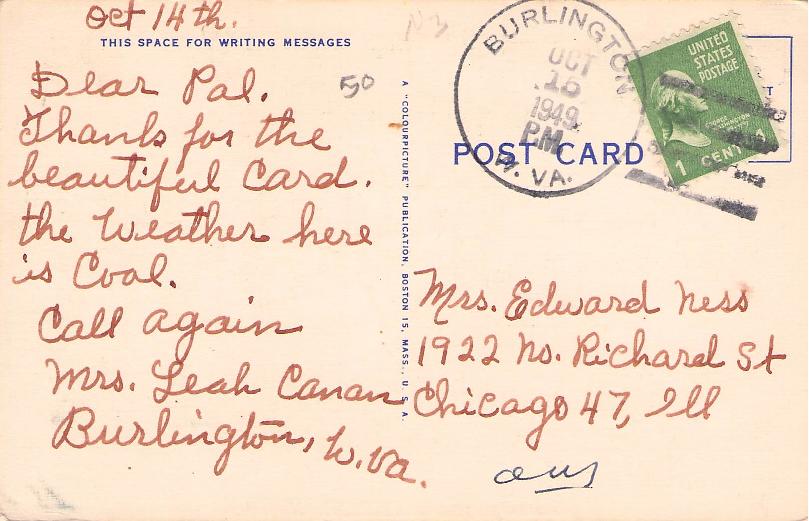 Oct 14th.
THIS SPACE FOR WRITING MESSAGES
Dear Pal.
Thanks for the
beautiful Card.
the Weather here
is Cool.
Call again
Mrs. Leah Canan
Burlington, W.Va.
50
A "COLOURPICTURE" PUBLICATION, BOSTON 15, MASS., U.S.A.
BURLINGTON
OCT
15
1949
P.M.
W. VA.
UNITED
STATES
POSTAGE
1 CENT 1
POST CARD
Mrs. Edward Ness
1922 No. Richard St
Chicago 47, Ill
ans